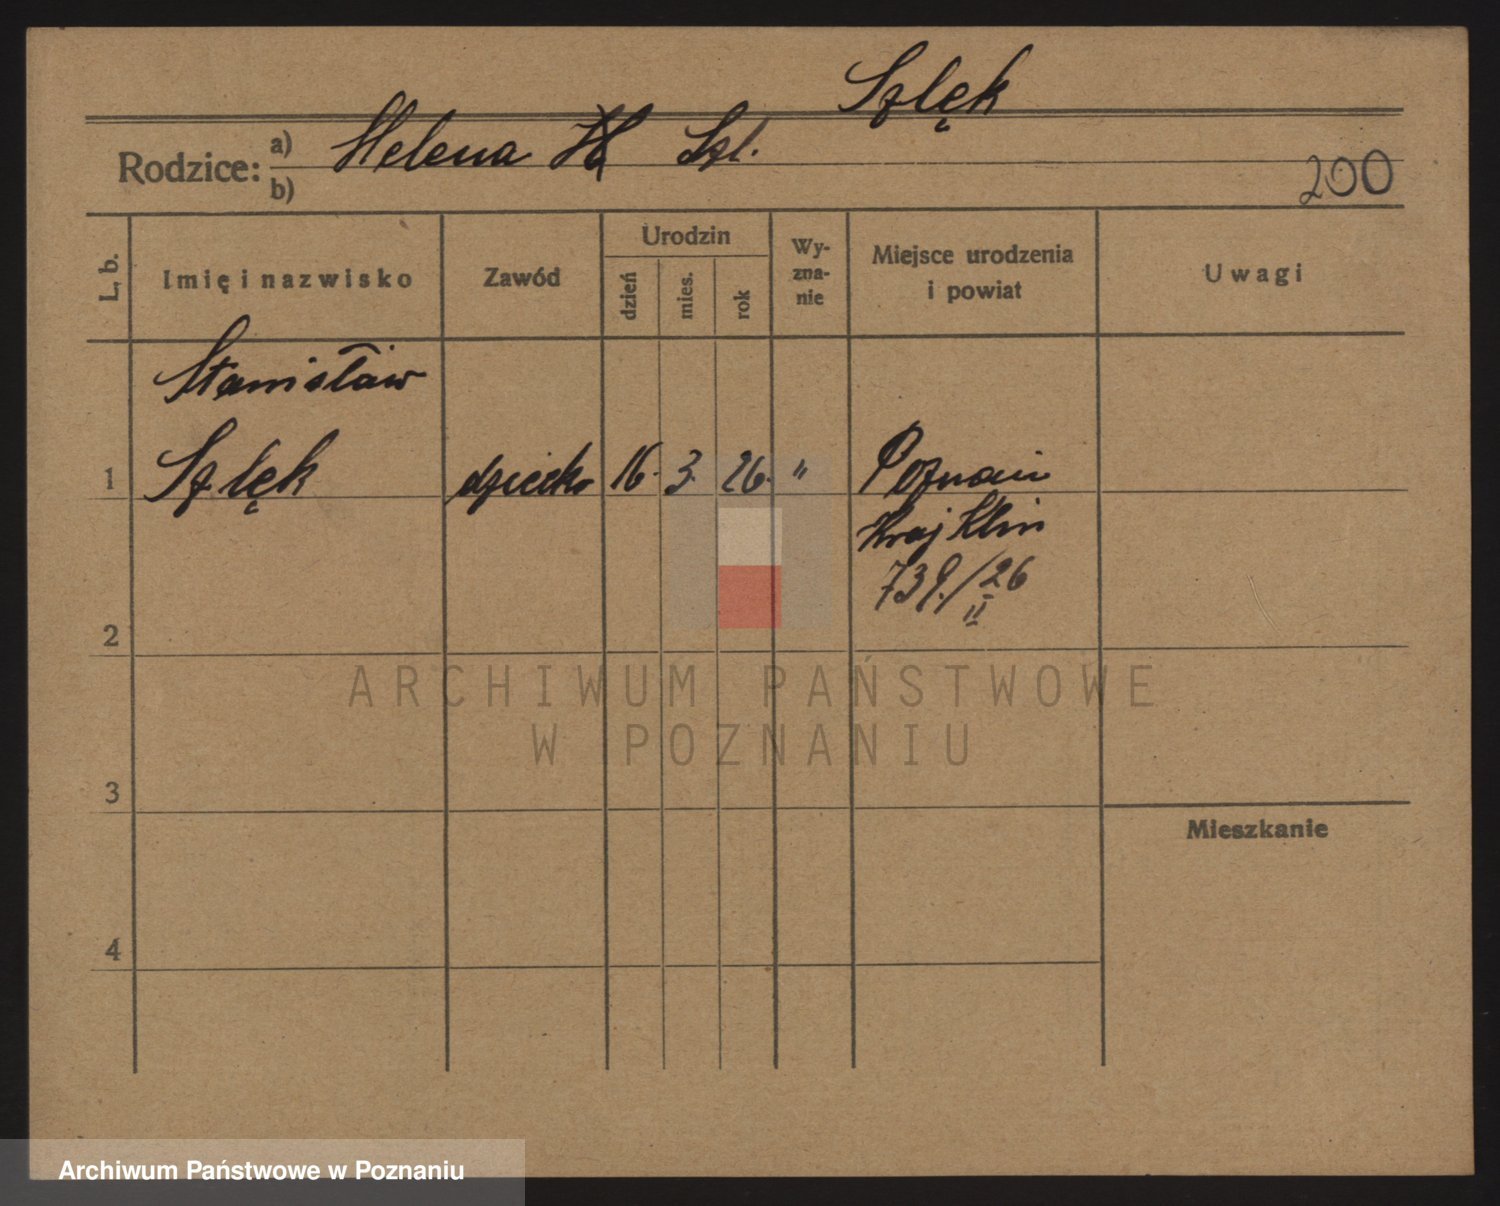 Szlęk
Rodzice: a) Helena Szl.
b)
200
L. b.
Imię i nazwisko
Zawód
Urodzin
dzień
mies.
rok
Wy-
zna-
nie
Miejsce urodzenia
i powiat
Uwagi
Stanisław
1 Szlęk dziecko 16. 3. 26. " Poznań
Kraj Klin
739./26
II
2
ARCHIWUM PAŃSTWOWE
W POZNANIU
3
Mieszkanie
4
Archiwum Państwowe w Poznaniu